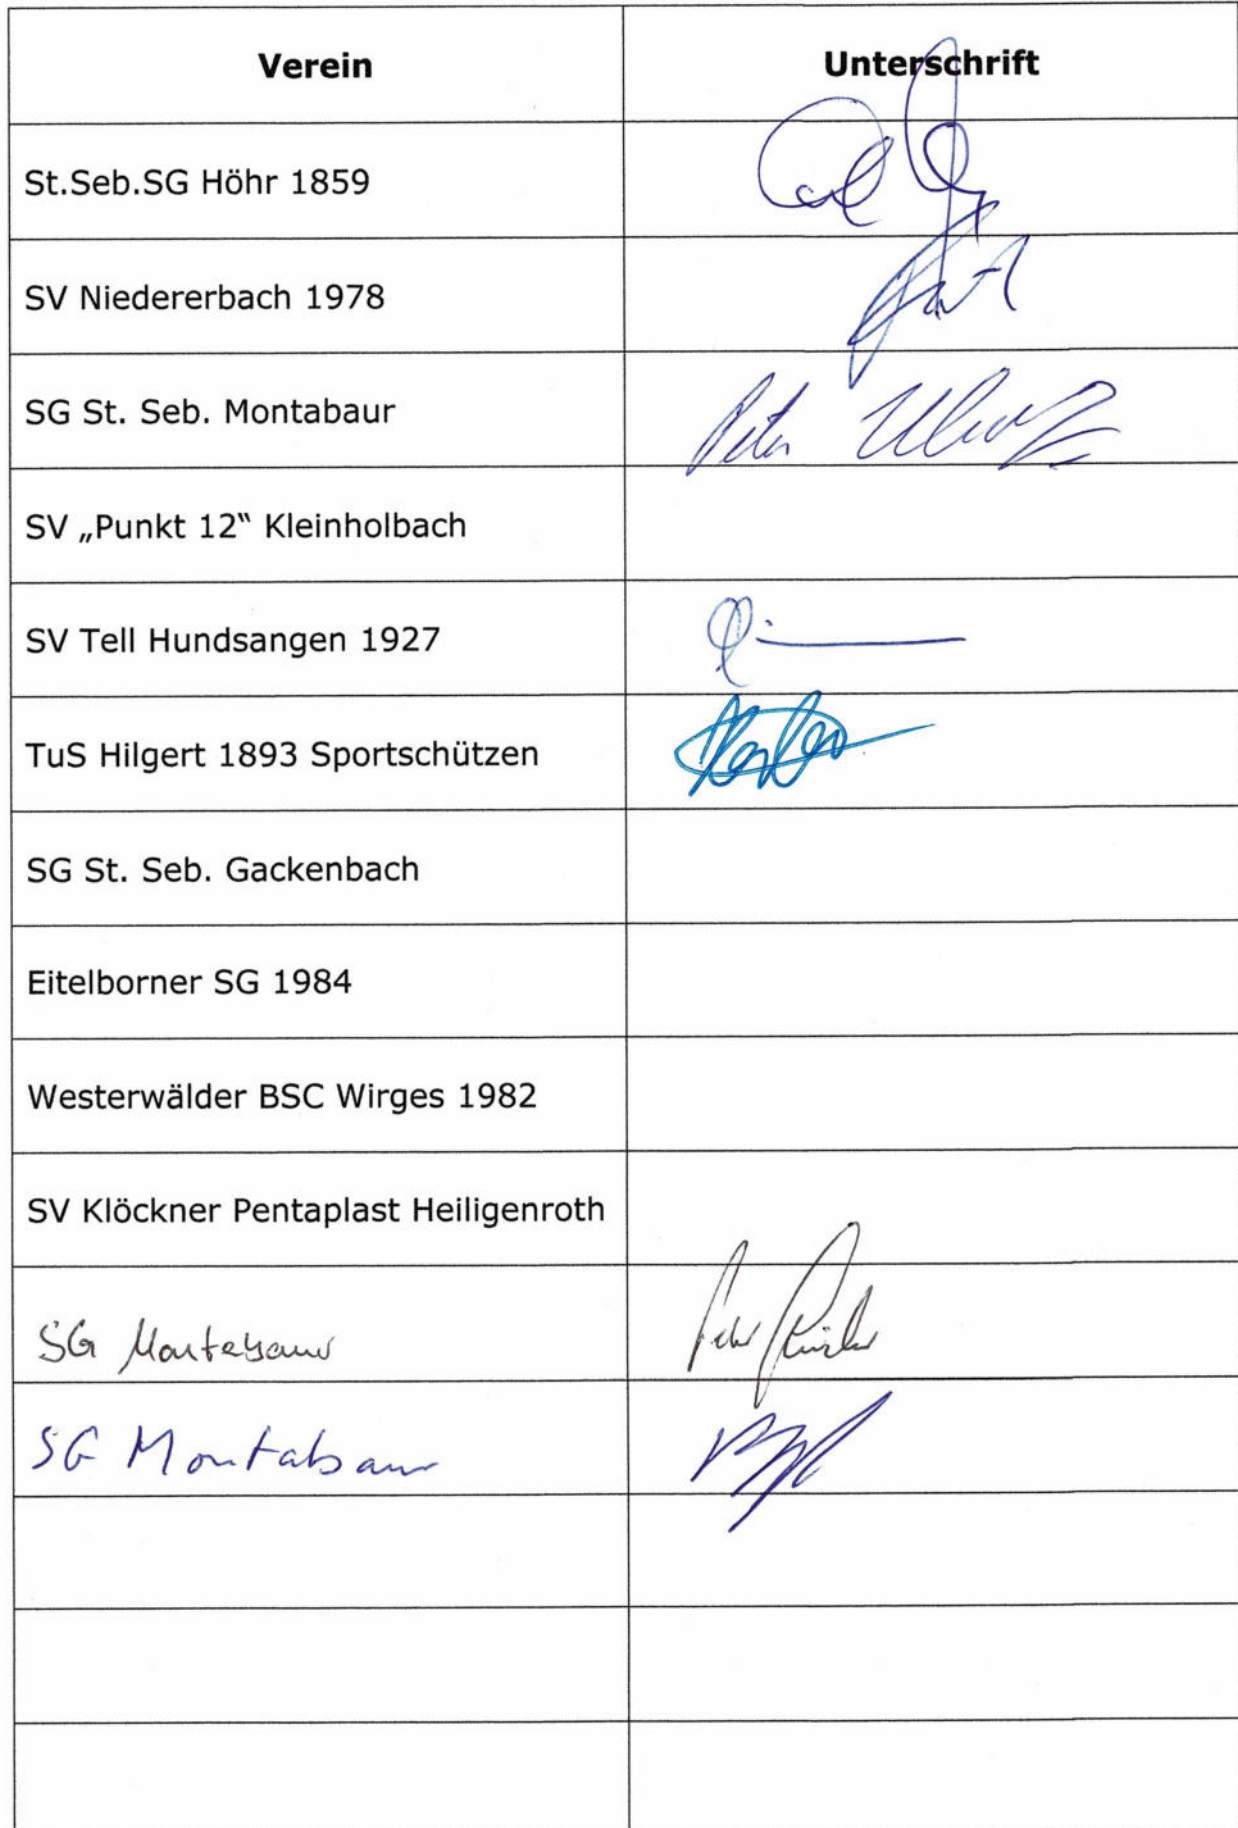 Verein Unterschrift
St.Seb.SG Höhr 1859
SV Niedererbach 1978
SG St. Seb. Montabaur Peter
SV „Punkt 12“ Kleinholbach
SV Tell Hundsangen 1927
TuS Hilgert 1893 Sportschützen
SG St. Seb. Gackenbach
Eitelborner SG 1984
Westerwälder BSC Wirges 1982
SV Klöckner Pentaplast Heiligenroth
SG Montabaur
SG Montabaur